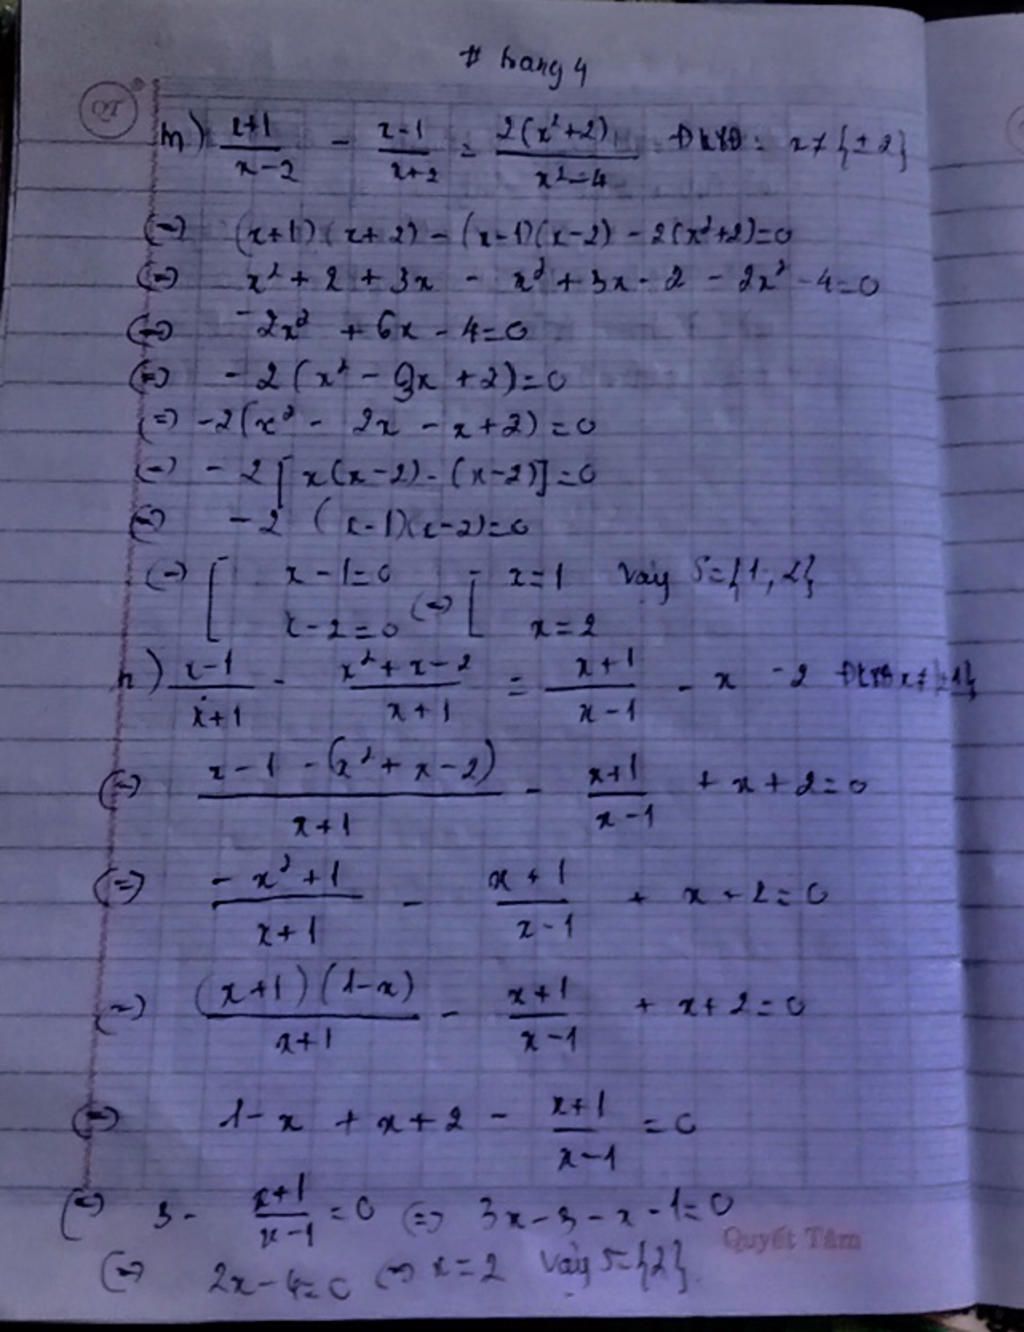 # trang 4
QT
m) \frac{x+1}{x-2} - \frac{x-1}{x+2} = \frac{2(x²+2)}{x²-4} ĐKXĐ: x≠{±2}
(=) (x+1)(x+2) - (x-1)(x-2) - 2(x²+2)=0
(=) x² + 2 + 3x - x² + 3x - 2 - 2x² - 4=0
(=) -2x² + 6x - 4=0
(=) -2(x² - 3x + 2)=0
(=) -2(x² - 2x - x + 2) = 0
(=) -2[x(x-2) - (x-2)]=0
(=) -2 (x-1)(x-2)=0
(=) [ x-1=0 (=) [ x=1 Vậy S={1,2}
x-2=0 x=2
n) \frac{x-1}{x+1} - \frac{x²+x-2}{x+1} = \frac{x+1}{x-1} - x - 2 ĐKXĐ x≠{±1}
(=) \frac{x-1-(x²+x-2)}{x+1} - \frac{x+1}{x-1} + x + 2=0
(=) \frac{-x²+1}{x+1} - \frac{x+1}{x-1} + x + 2=0
(=) \frac{(x+1)(1-x)}{x+1} - \frac{x+1}{x-1} + x+2=0
(=) 1-x + x+2 - \frac{x+1}{x-1} = 0
(=) 3 - \frac{x+1}{x-1} = 0 (=) 3x-3-x-1=0
Quyết Tâm
(=) 2x-4=0 (=) x=2 Vậy S={2}